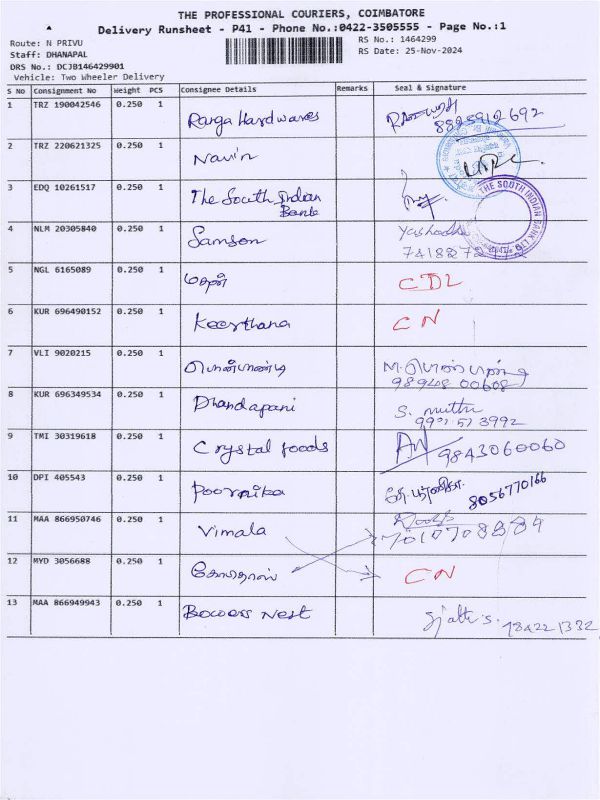 THE PROFESSIONAL COURIERS, COIMBATORE
Delivery Runsheet - P41 - Phone No.:0422-3505555 - Page No.:1
Route: N PRIVU
RS No.: 1464299
Staff: DHANAPAL
RS Date: 25-Nov-2024
DRS No.: DCJB146429901
Vehicle: Two Wheeler Delivery
S No Consignment No Weight PCS Consignee Details Remarks Seal & Signature
1 TRZ 190042546 0.250 1 Ranga Hardwares 8825912692
2 TRZ 220621325 0.250 1 Navin
3 EDQ 10261517 0.250 1 The South Indian Bank
THE SOUTH INDIAN BANK LTD
4 NLM 20305840 0.250 1 Samson
5 NGL 6165089 0.250 1 CDL
6 KUR 696490152 0.250 1 Keerthana CN
7 VLI 9020215 0.250 1 பொன்பாண்டி
8 KUR 696349534 0.250 1 Dhandapani S. muthu
9 TMI 30319618 0.250 1 Crystal foods 9843060060
10 DPI 405543 0.250 1 Poornika 8056770166
11 MAA 866950746 0.250 1 Vimala
12 MYD 3056688 0.250 1 CN
13 MAA 866949943 0.250 1 Bowers Nest